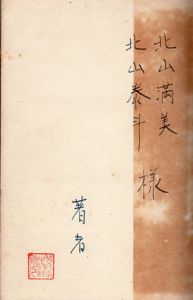 北山満美
北山泰斗
様
著者